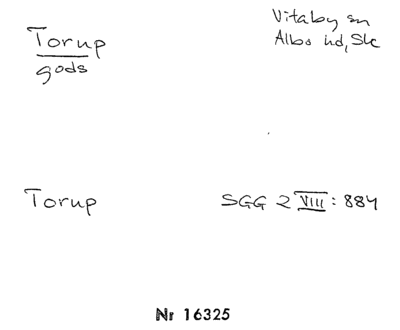 Torup
gods
Vitaby sn
Albo hd, Sk
Torup
SGG 2 VIII: 884
Nr 16325